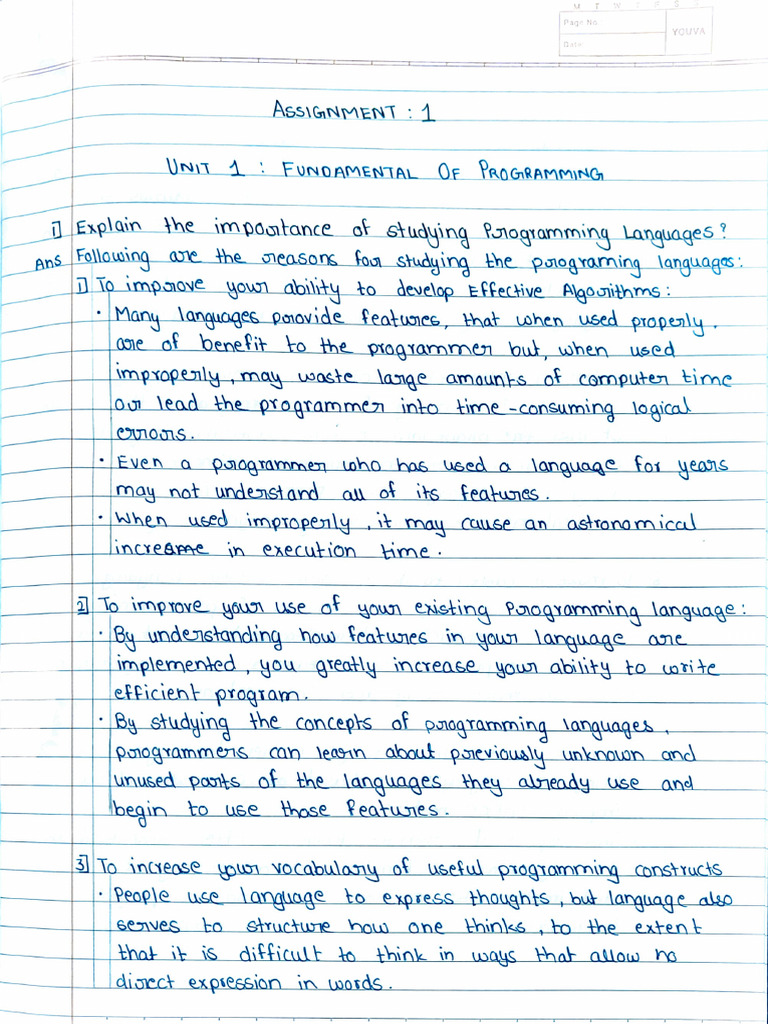 M T W T F S S
Page No.
YOUVA
Date
ASSIGNMENT : 1
UNIT 1 : FUNDAMENTAL OF PROGRAMMING
1] Explain the importance of studying Programming Languages?
Ans Following are the reasons for studying the programing languages:
1] To improve your ability to develop Effective Algorithms:
• Many languages provide features, that when used properly,
are of benefit to the programmer but, when used
improperly, may waste large amounts of computer time
or lead the programmer into time-consuming logical
errors.
• Even a programmer who has used a language for years
may not understand all of its features.
• When used improperly, it may cause an astronomical
increase in execution time.
2] To improve your use of your existing Programming language:
• By understanding how features in your language are
implemented, you greatly increase your ability to write
efficient program.
• By studying the concepts of programming languages,
programmers can learn about previously unknown and
unused parts of the languages they already use and
begin to use those features.
3] To increase your vocabulary of useful programming constructs
• People use language to express thoughts, but language also
serves to structure how one thinks, to the extent
that it is difficult to think in ways that allow no
direct expression in words.